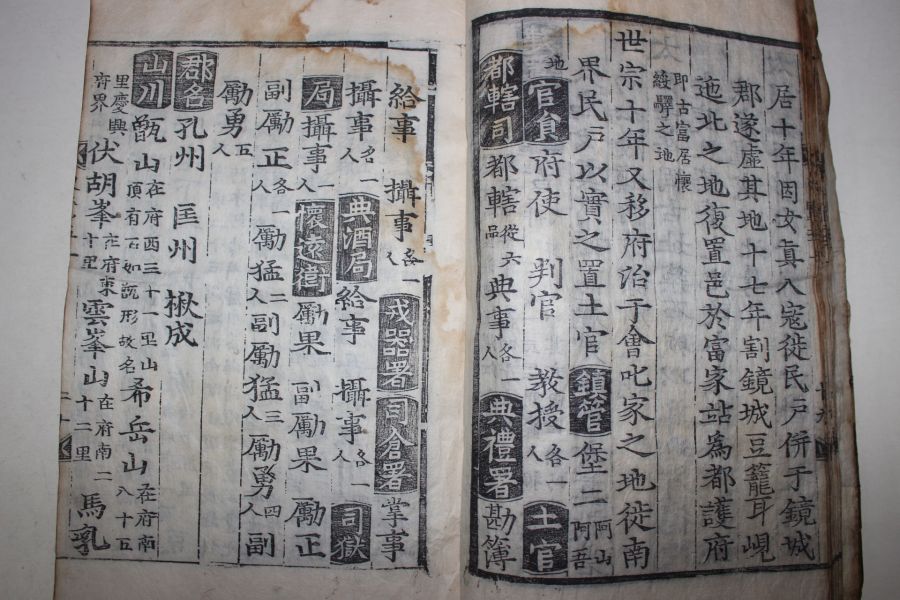 居十年因女真入寇徙民戶併于鏡城
郡遂虛其地十七年割鏡城豆籠耳峴
迤北之地復置邑於富家站為都護府
即古當居懷
綾驛之地
世宗十年又移府治于會叱家之地徙南
界民戶以實之置土官 鎮管 堡二 阿山 阿吾
地 官員 府使 判官 教授 各一人 土官
都轄司 都轄 從六品 典事 各一人 典禮署 勘簿
給事 攝事 各一人 戎器署 司倉署 掌事
攝事 各一人 典酒局 給事 攝事 各一人 司獄
局 攝事 一人 懷遠衛 勵果 副勵果 勵正
副勵正 各一人 勵猛 二人 副勵猛 三人 勵勇 四人 副
勵勇 五人
郡名 孔州 匡州 揪成
山川 甑山 在府西三十一里山頂有石如甑形故名 希岳山 在府南八十五
里慶興府界 伏胡峯 在府東十里 雲峯山 在府南二十二里 馬乳